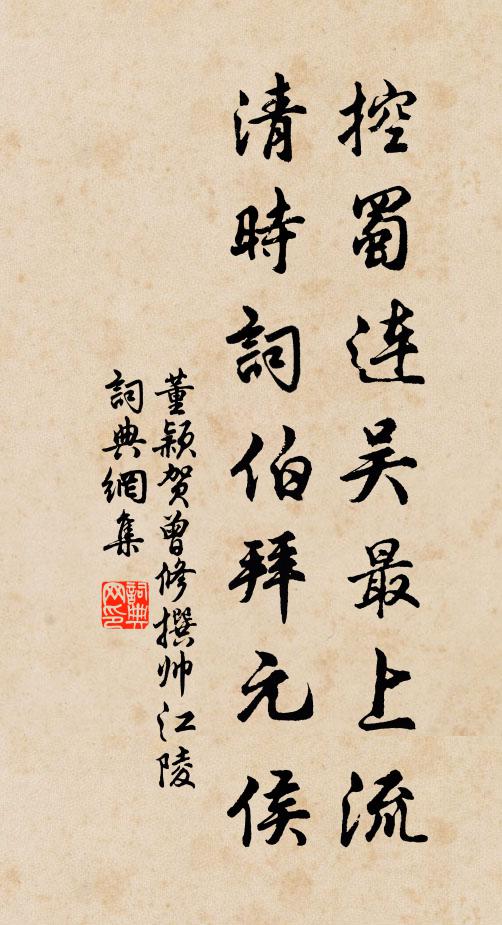 控蜀连吴最上流
清時詞伯拜元侯
董颖贺曾修撰帅江陵
詞典網集
詞典
网印